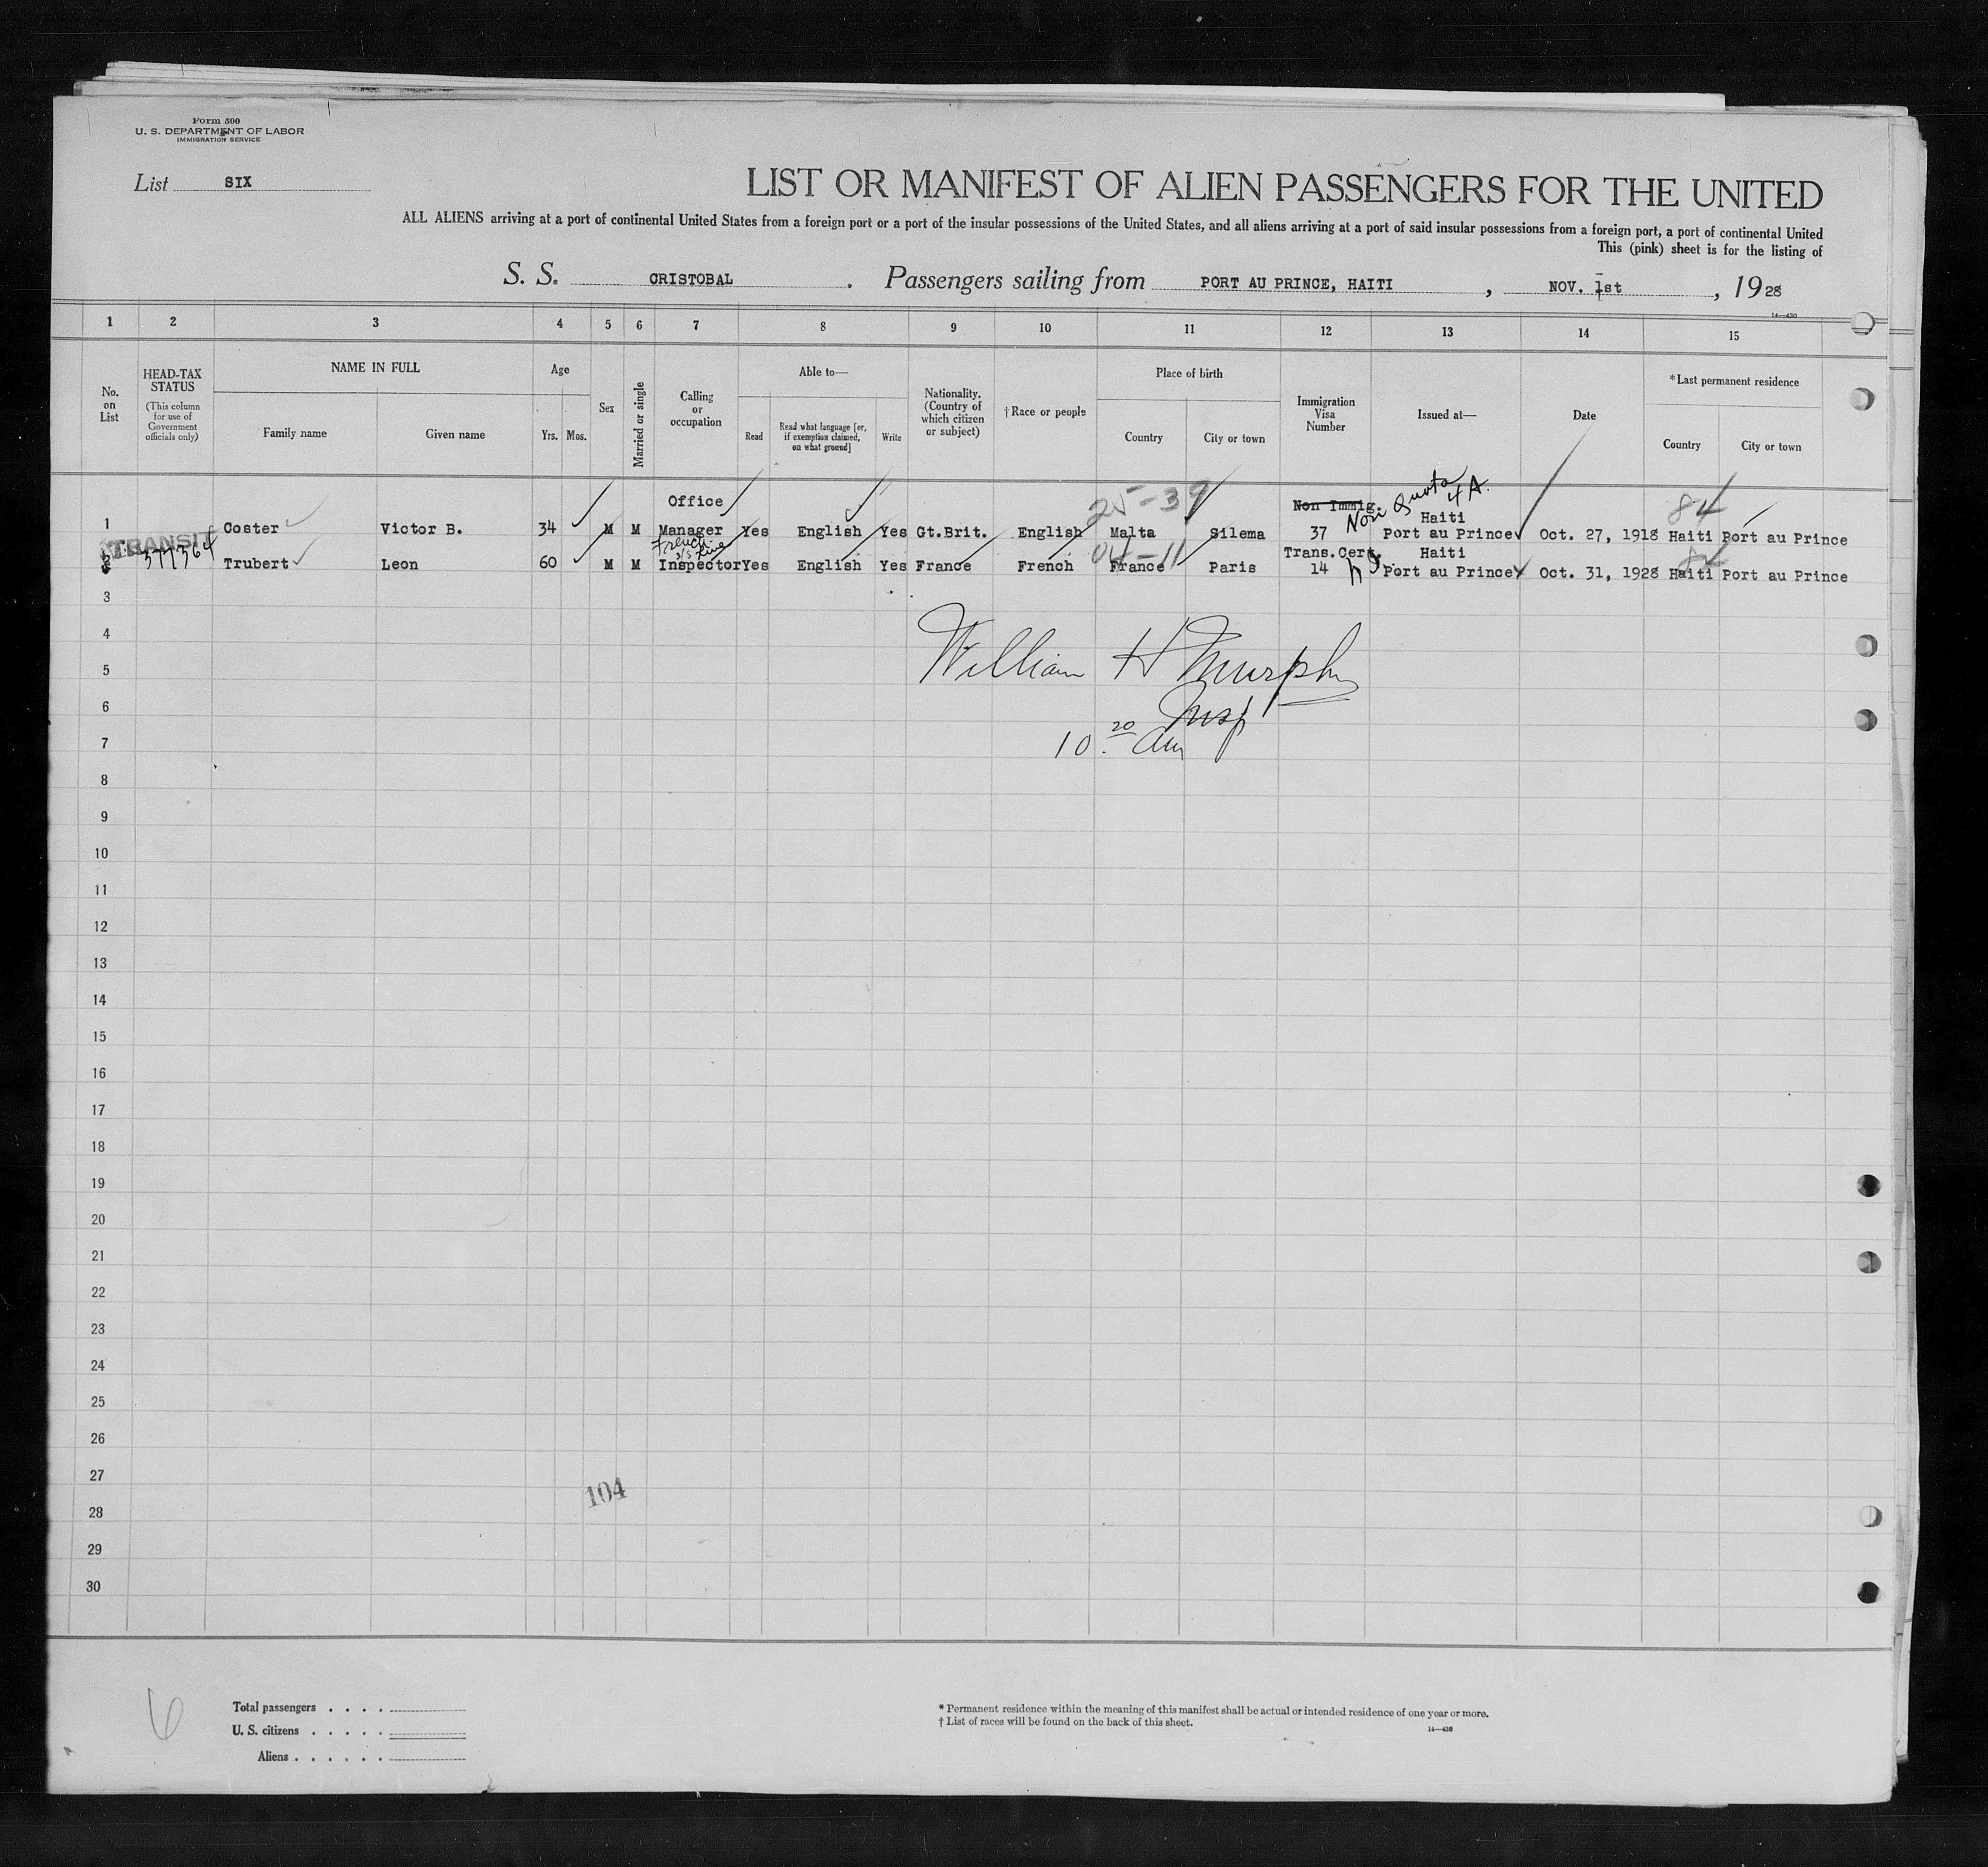 Form 500
U. S. DEPARTMENT OF LABOR
IMMIGRATION SERVICE
List SIX
LIST OR MANIFEST OF ALIEN PASSENGERS FOR THE UNITED
ALL ALIENS arriving at a port of continental United States from a foreign port or a port of the insular possessions of the United States, and all aliens arriving at a port of said insular possessions from a foreign port, a port of continental United
This (pink) sheet is for the listing of
S. S. CRISTOBAL. Passengers sailing from PORT AU PRINCE, HAITI, NOV. 1st, 1928
14—430
1 2 3 4 5 6 7 8 9 10 11 12 13 14 15
No. on List
HEAD-TAX STATUS
(This column for use of Government officials only)
NAME IN FULL
Family name
Given name
Age
Yrs. Mos.
Sex
Married or single
Calling or occupation
Able to—
Read
Read what language [or, if exemption claimed, on what ground]
Write
Nationality. (Country of which citizen or subject)
† Race or people
Place of birth
Country
City or town
Immigration Visa Number
Issued at—
Date
*Last permanent residence
Country
City or town
Office 25-39 Non Immig. Non Quota 4 A. Haiti 84
1 Coster Victor B. 34 M M Manager Yes English Yes Gt.Brit. English Malta Silema 37 Port au Prince Oct. 27, 1918 Haiti Port au Prince
TRANSIT 377364 French S/S Line 04-11 Trans.Cert. Haiti
2 Trubert Leon 60 M M Inspector Yes English Yes France French France Paris 14 Port au Prince Oct. 31, 1928 Haiti Port au Prince
3
4
William H Murphy
5
6
Insp
7
10.20 am
8
9
10
11
12
13
14
15
16
17
18
19
20
21
22
23
24
25
26
27
104
28
29
30
6
Total passengers . . . .
U. S. citizens . . . . .
Aliens . . . . . .
* Permanent residence within the meaning of this manifest shall be actual or intended residence of one year or more.
† List of races will be found on the back of this sheet.
14—430